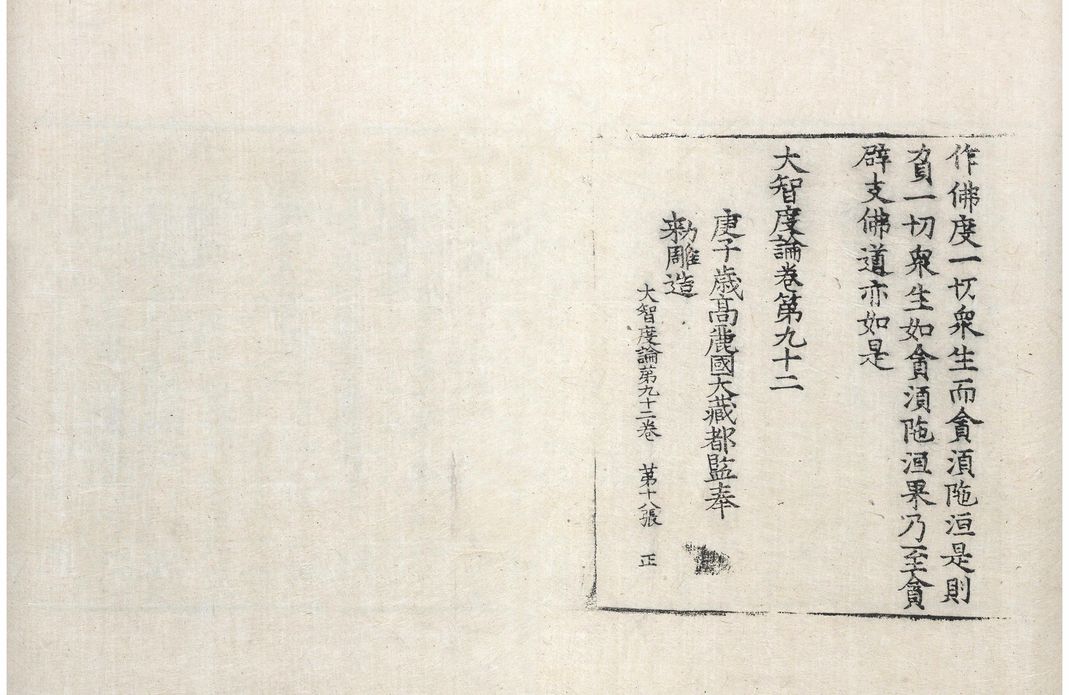 作佛度一切衆生而貪須陁洹是則
負一切衆生如貪須陁洹果乃至貪
辟支佛道亦如是
大智度論卷第九十二
庚子歳高麗國大藏都監奉
勑雕造
大智度論第九十二卷 第十八張 正